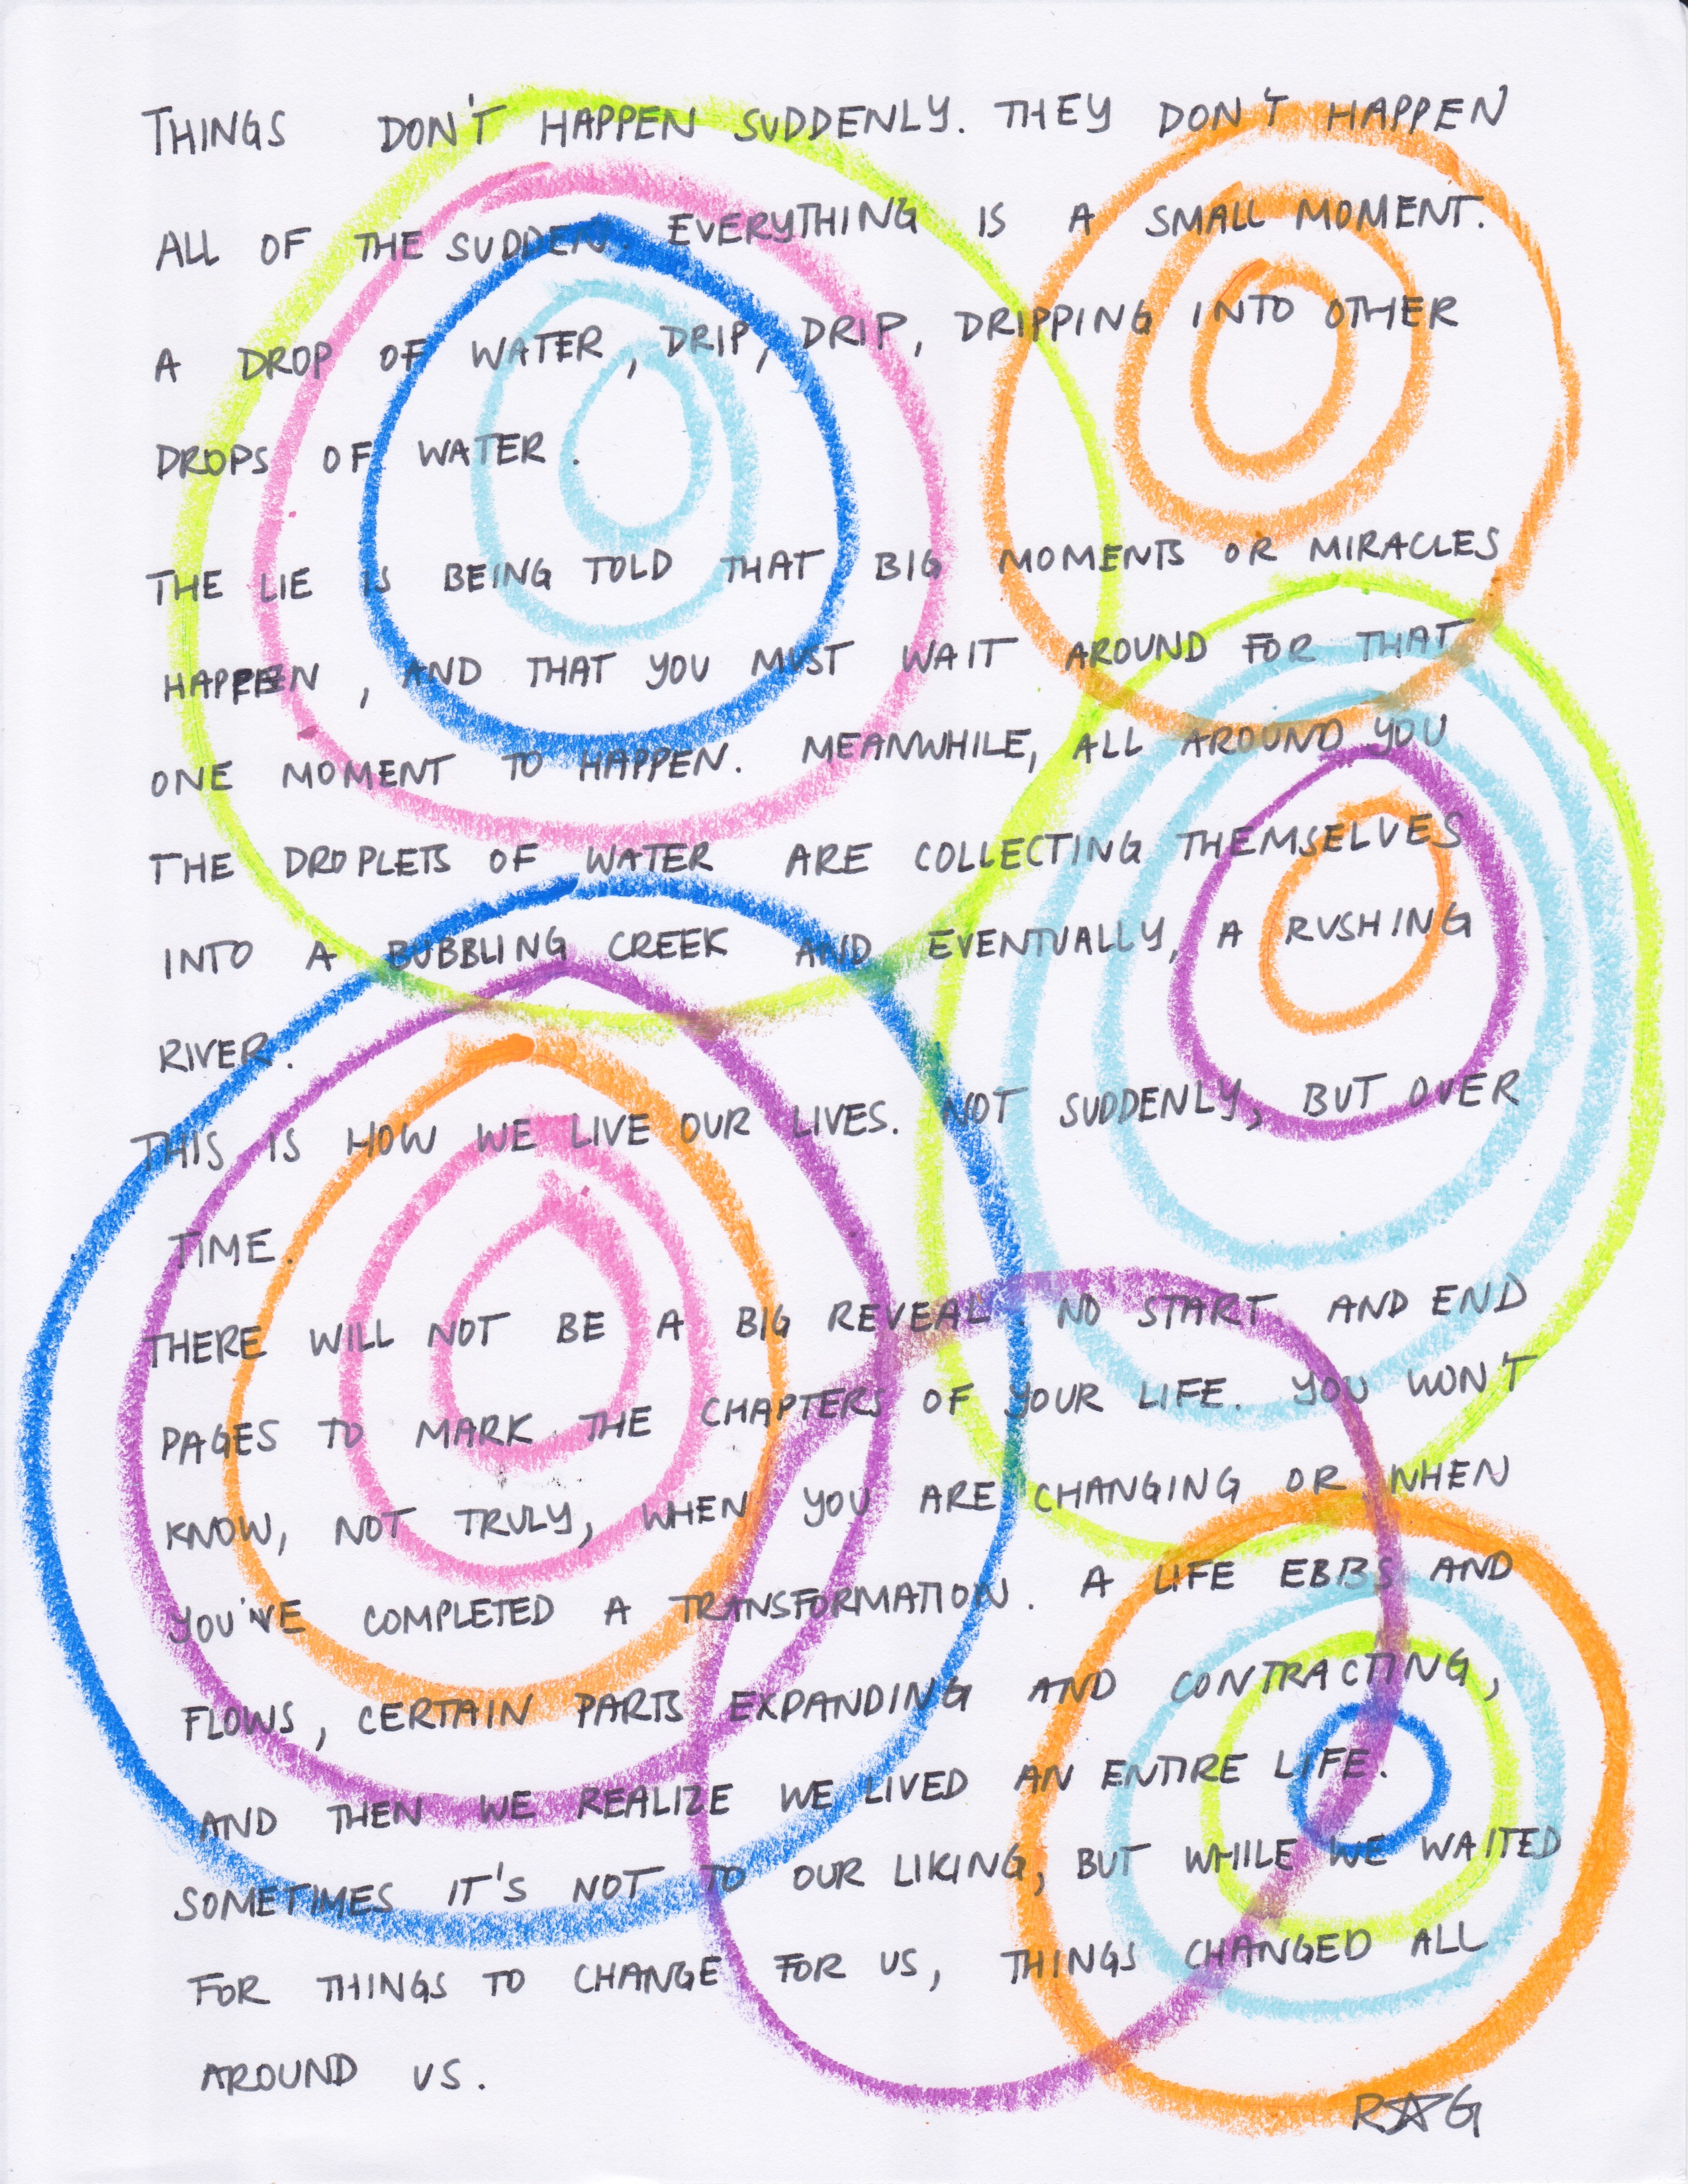 THINGS DON'T HAPPEN SUDDENLY. THEY DON'T HAPPEN
ALL OF THE SUDDEN. EVERYTHING IS A SMALL MOMENT.
A DROP OF WATER, DRIP, DRIP, DRIPPING INTO OTHER
DROPS OF WATER.
THE LIE IS BEING TOLD THAT BIG MOMENTS OR MIRACLES
HAPPEN, AND THAT YOU MUST WAIT AROUND FOR THAT
ONE MOMENT TO HAPPEN. MEANWHILE, ALL AROUND YOU
THE DROPLETS OF WATER ARE COLLECTING THEMSELVES
INTO A BUBBLING CREEK AND EVENTUALLY, A RUSHING
RIVER.
THIS IS HOW WE LIVE OUR LIVES. NOT SUDDENLY, BUT OVER
TIME.
THERE WILL NOT BE A BIG REVEAL NO START AND END
PAGES TO MARK THE CHAPTERS OF YOUR LIFE. YOU WON'T
KNOW, NOT TRULY, WHEN YOU ARE CHANGING OR WHEN
YOU'VE COMPLETED A TRANSFORMATION. A LIFE EBBS AND
FLOWS, CERTAIN PARTS EXPANDING AND CONTRACTING,
AND THEN WE REALIZE WE LIVED AN ENTIRE LIFE.
SOMETIMES IT'S NOT TO OUR LIKING, BUT WHILE WE WAITED
FOR THINGS TO CHANGE FOR US, THINGS CHANGED ALL
AROUND US.
R☆G